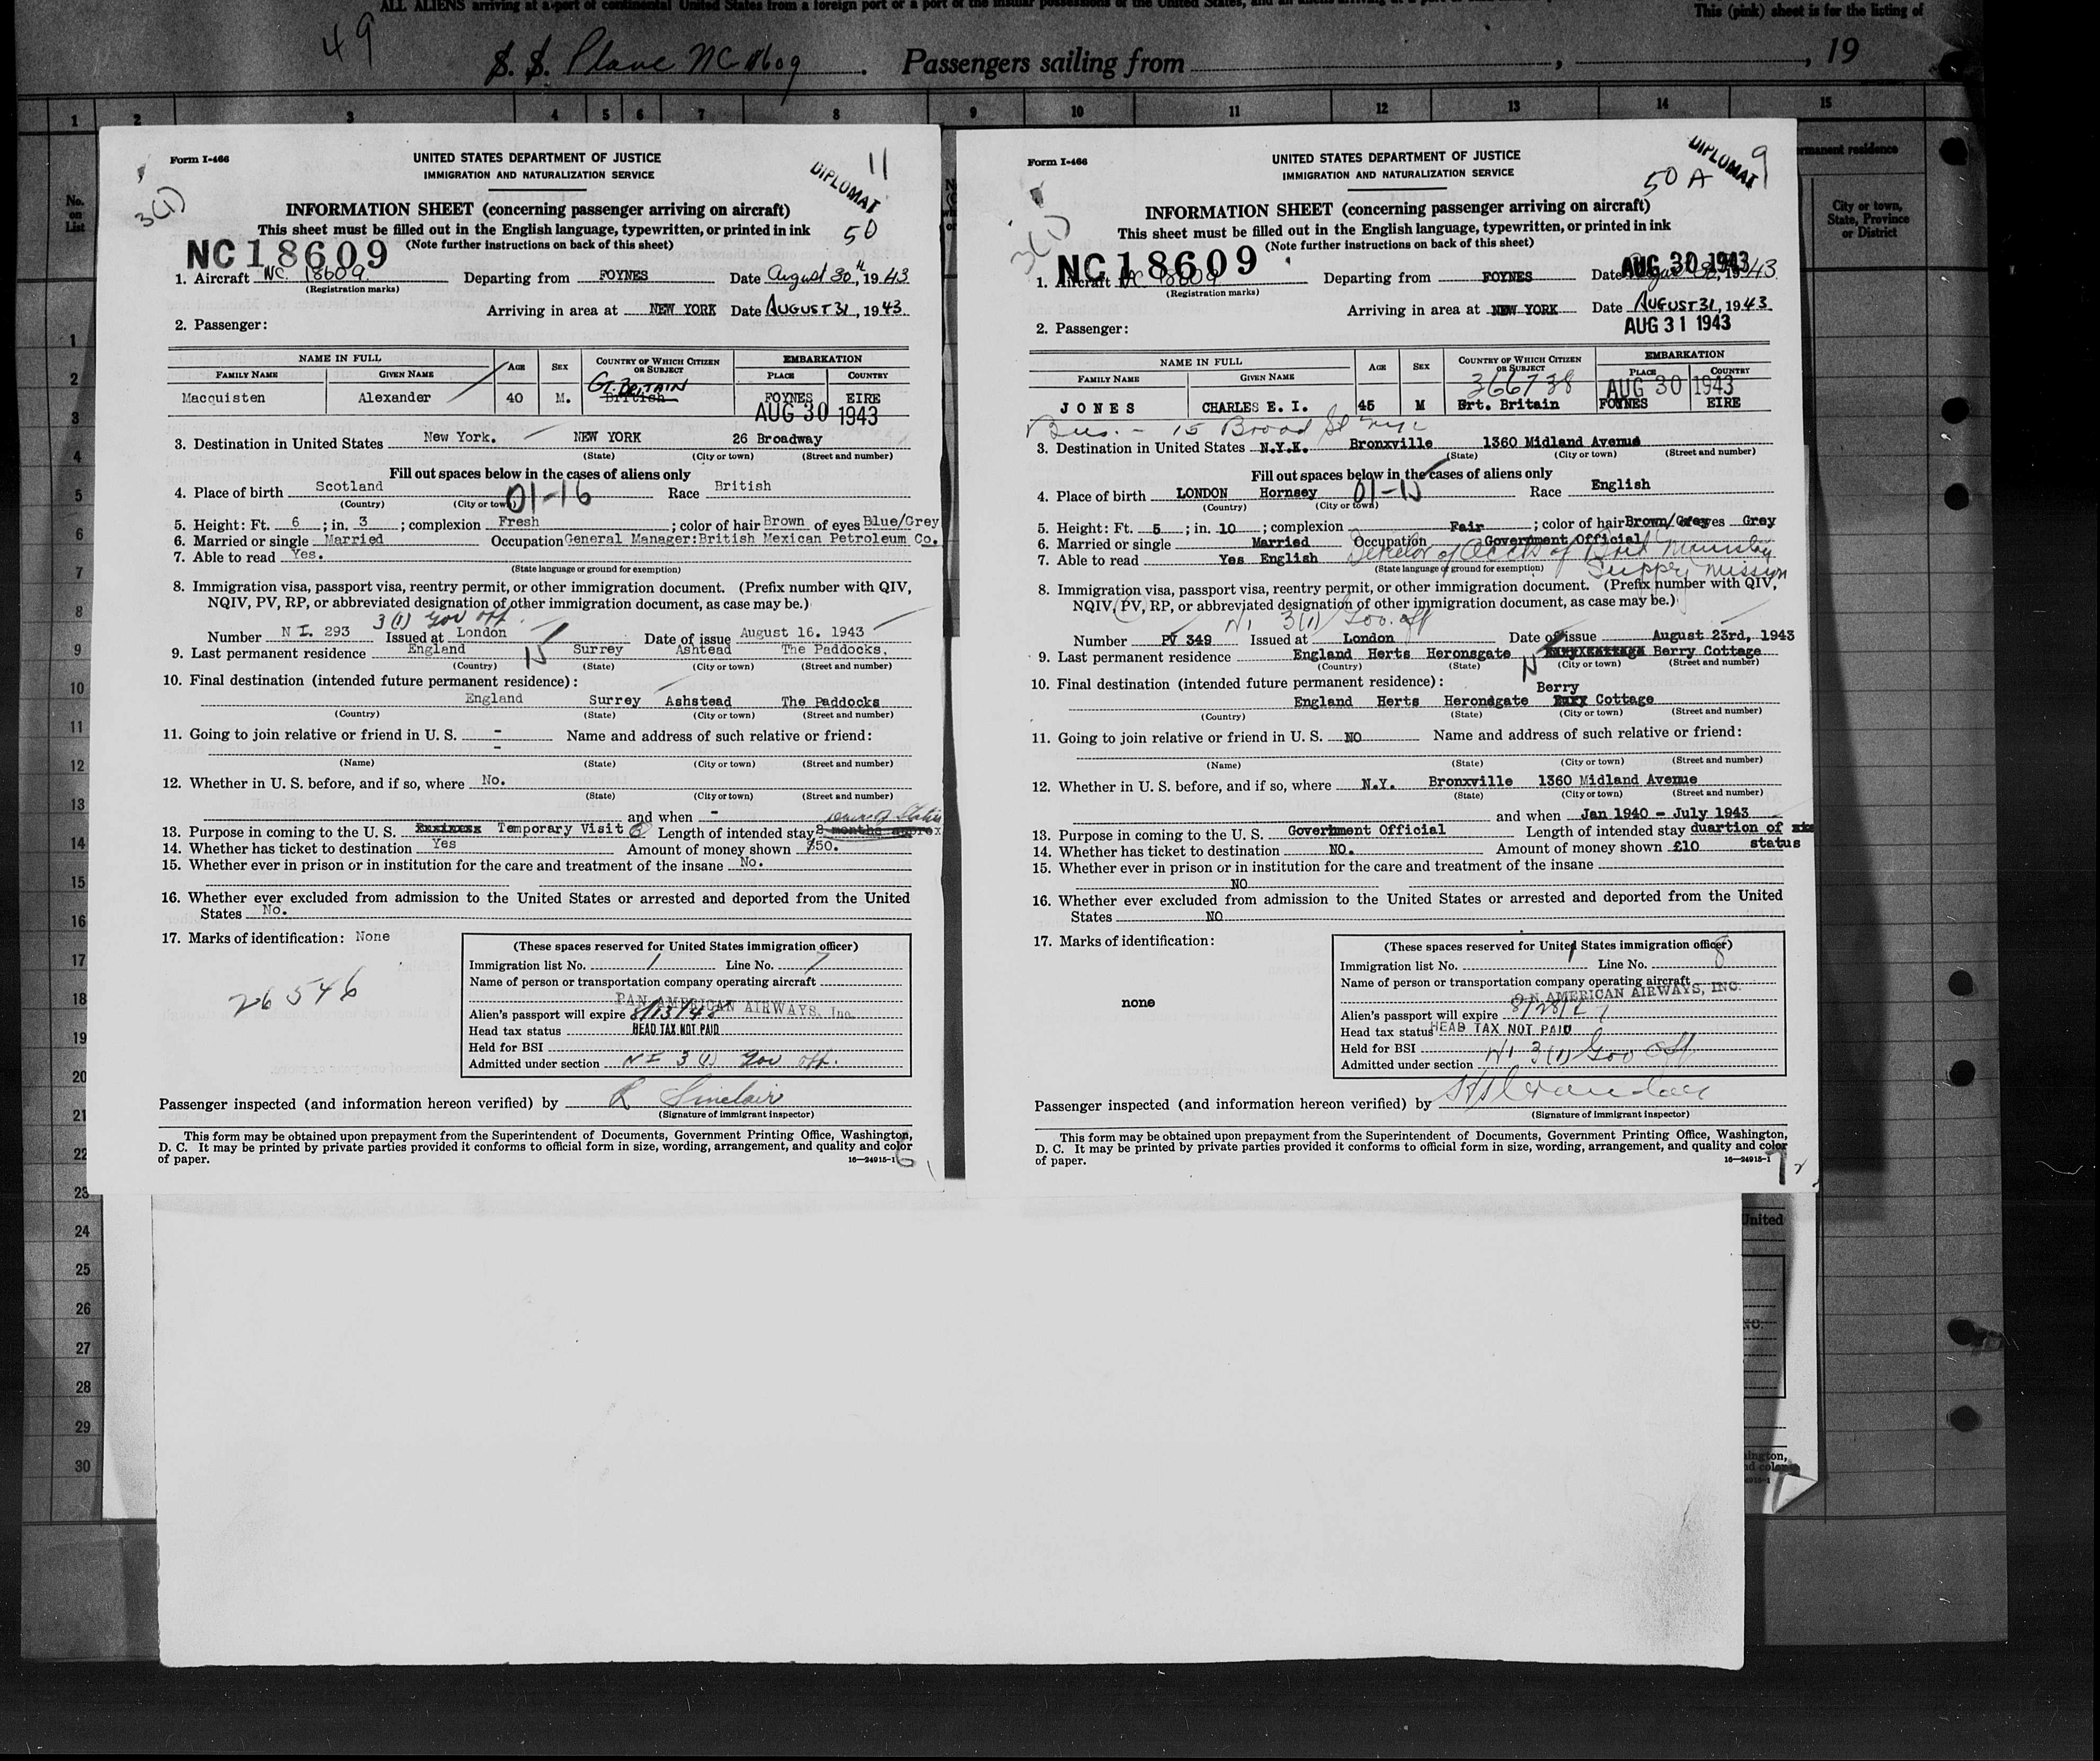 ALL ALIENS arriving at a port of continental United States from a foreign port or a port of the insular possessions of the United States, and all aliens arriving at a port
This (pink) sheet is for the listing of
49
S. S. Plane NC 18609. Passengers sailing from , , 19
1 2 3 4 5 6 7 8 9 10 11 12 13 14 15
No. on List
permanent residence
City or town, State, Province or District
Form I-466
UNITED STATES DEPARTMENT OF JUSTICE
IMMIGRATION AND NATURALIZATION SERVICE
DIPLOMAT
11
3(1)
50
INFORMATION SHEET (concerning passenger arriving on aircraft)
This sheet must be filled out in the English language, typewritten, or printed in ink
(Note further instructions on back of this sheet)
NC18609
1. Aircraft NC. 18609. Departing from FOYNES Date August 30th, 1943
(Registration marks)
Arriving in area at NEW YORK Date AUGUST 31, 1943.
2. Passenger:
NAME IN FULL AGE SEX COUNTRY OF WHICH CITIZEN OR SUBJECT EMBARKATION
FAMILY NAME GIVEN NAME PLACE COUNTRY
GT. BRITAIN
Macquisten Alexander 40 M. British FOYNES EIRE
AUG 30 1943
3. Destination in United States New York. NEW YORK 26 Broadway
(State) (City or town) (Street and number)
Fill out spaces below in the cases of aliens only
4. Place of birth Scotland 01-16 Race British
(Country) (City or town)
5. Height: Ft. 6; in. 3; complexion Fresh; color of hair Brown of eyes Blue/Grey
6. Married or single Married Occupation General Manager:British Mexican Petroleum Co.
7. Able to read Yes.
(State language or ground for exemption)
8. Immigration visa, passport visa, reentry permit, or other immigration document. (Prefix number with QIV,
NQIV, PV, RP, or abbreviated designation of other immigration document, as case may be.)
3(1) Gov off.
Number N I. 293 Issued at London Date of issue August 16. 1943
9. Last permanent residence England Surrey Ashtead The Paddocks,
(Country) (State) (City or town) (Street and number)
10. Final destination (intended future permanent residence):
England Surrey Ashstead The Paddocks
(Country) (State) (City or town) (Street and number)
11. Going to join relative or friend in U. S. - Name and address of such relative or friend:
-
(Name) (State) (City or town) (Street and number)
12. Whether in U. S. before, and if so, where No.
(State) (City or town) (Street and number)
and when -
13. Purpose in coming to the U. S. Temporary Visit Length of intended stay 2 months approx
14. Whether has ticket to destination Yes Amount of money shown $50.
15. Whether ever in prison or in institution for the care and treatment of the insane No.
16. Whether ever excluded from admission to the United States or arrested and deported from the United
States No.
17. Marks of identification: None
26546
(These spaces reserved for United States immigration officer)
Immigration list No. 1 Line No. 7
Name of person or transportation company operating aircraft
PAN AMERICAN AIRWAYS, Inc.
Alien's passport will expire 8/13/48
Head tax status HEAD TAX NOT PAID
Held for BSI
Admitted under section NI 3(1) Gov off.
Passenger inspected (and information hereon verified) by R Sinclair
(Signature of immigrant inspector)
This form may be obtained upon prepayment from the Superintendent of Documents, Government Printing Office, Washington,
D. C. It may be printed by private parties provided it conforms to official form in size, wording, arrangement, and quality and color
of paper. 16—24915-1
Form I-466
UNITED STATES DEPARTMENT OF JUSTICE
IMMIGRATION AND NATURALIZATION SERVICE
DIPLOMAT
9
50 A
3(1)
INFORMATION SHEET (concerning passenger arriving on aircraft)
This sheet must be filled out in the English language, typewritten, or printed in ink
(Note further instructions on back of this sheet)
NC18609
1. Aircraft NC 18609 Departing from FOYNES Date AUG 30 1943
(Registration marks)
Arriving in area at NEW YORK Date AUGUST 31, 1943.
AUG 31 1943
2. Passenger:
NAME IN FULL AGE SEX COUNTRY OF WHICH CITIZEN OR SUBJECT EMBARKATION
FAMILY NAME GIVEN NAME PLACE COUNTRY
366738 AUG 30 1943
JONES CHARLES E. I. 45 M Grt. Britain FOYNES EIRE
Bus. - 15 Broad St NYC
3. Destination in United States N.Y.K. Bronxville 1360 Midland Avenue
(State) (City or town) (Street and number)
Fill out spaces below in the cases of aliens only
4. Place of birth LONDON Hornsey 01-15 Race English
(Country) (City or town)
5. Height: Ft. 5; in. 10; complexion Fair; color of hair Brown/Grey eyes Grey
6. Married or single Married Occupation Government Official
Director of Accts of Brit Ministry Supply Mission
7. Able to read Yes English
(State language or ground for exemption)
8. Immigration visa, passport visa, reentry permit, or other immigration document. (Prefix number with QIV,
NQIV, PV, RP, or abbreviated designation of other immigration document, as case may be.)
NI 3(1) Gov. off
Number PV 349 Issued at London Date of issue August 23rd, 1943
9. Last permanent residence England Herts Heronsgate Berry Cottage
(Country) (State) (City or town) (Street and number)
10. Final destination (intended future permanent residence):
Berry
England Herts Herondgate Cottage
(Country) (State) (City or town) (Street and number)
11. Going to join relative or friend in U. S. NO Name and address of such relative or friend:
(Name) (State) (City or town) (Street and number)
12. Whether in U. S. before, and if so, where N.Y. Bronxville 1360 Midland Avenue
(State) (City or town) (Street and number)
and when Jan 1940 - July 1943
13. Purpose in coming to the U. S. Government Official Length of intended stay duartion of
status
14. Whether has ticket to destination NO. Amount of money shown £10
15. Whether ever in prison or in institution for the care and treatment of the insane
NO
16. Whether ever excluded from admission to the United States or arrested and deported from the United
States NO
17. Marks of identification:
none
(These spaces reserved for United States immigration officer)
Immigration list No. 1 Line No. 8
Name of person or transportation company operating aircraft
PAN AMERICAN AIRWAYS, INC.
Alien's passport will expire
Head tax status HEAD TAX NOT PAID
Held for BSI
Admitted under section NI 3(1) Gov Off
Passenger inspected (and information hereon verified) by
(Signature of immigrant inspector)
This form may be obtained upon prepayment from the Superintendent of Documents, Government Printing Office, Washington,
D. C. It may be printed by private parties provided it conforms to official form in size, wording, arrangement, and quality and color
of paper. 16—24915-1
1
2
3
4
5
6
7
8
9
10
11
12
13
14
15
16
17
18
19
20
21
22
23
24
25
26
27
28
29
30
United